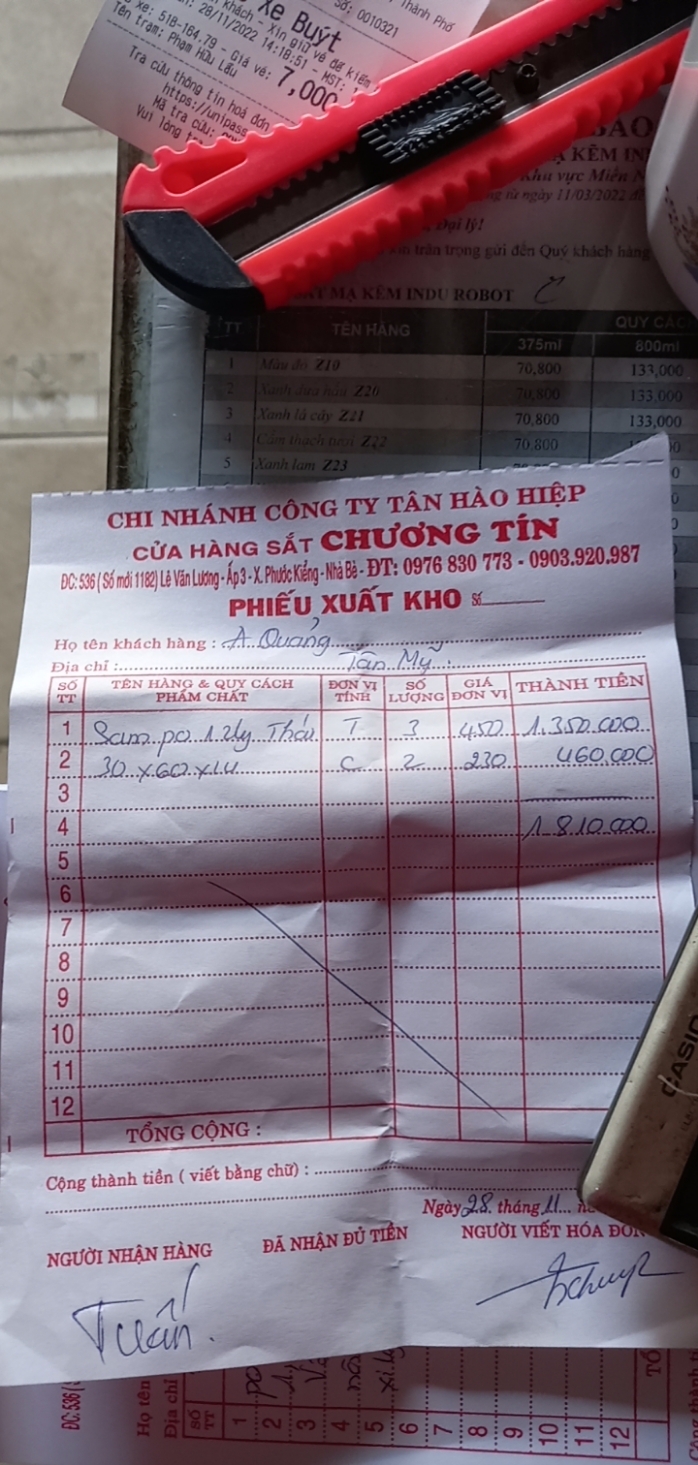 Thành Phố
Số: 0010321
xe Buýt
Khách - Xin giữ vé để kiểm
28/11/2022 14:18:51 - MST:
xe: 51B-164.79 - Giá vé: 7,000
Tên trạm: Phạm Hữu Lầu
Tra cứu thông tin hoá đơn
https://unipass
Mã tra cứu:
Vui lòng
BÁO
MẠ KẼM IN
Khu vực Miền N
ng từ ngày 11/03/2022 đ
Đại lý!
trân trọng gửi đến Quý khách hàng
MẠ KẼM INDU ROBOT
TT TÊN HÀNG QUY CÁC
375ml 800ml
1 Màu đỏ Z19 70,800 133,000
2 Xanh dưa hấu Z20 70,800 133,000
3 Xanh lá cây Z21 70,800 133,000
4 Cẩm thạch tươi Z22 70,800
5 Xanh lam Z23
CHI NHÁNH CÔNG TY TÂN HÀO HIỆP
CỬA HÀNG SẮT CHƯƠNG TÍN
ĐC: 536 ( Số mới 1182) Lê Văn Lương - Ấp 3 - X. Phước Kiểng - Nhà Bè - ĐT: 0976 830 773 - 0903.920.987
PHIẾU XUẤT KHO Số
Họ tên khách hàng : A Quảng
Địa chỉ : Tân Mỹ
SỐ TT TÊN HÀNG & QUY CÁCH PHẨM CHẤT ĐƠN VỊ TÍNH SỐ LƯỢNG GIÁ ĐƠN VỊ THÀNH TIỀN
1 Sam po 1.2ly Thái T 3 450 1.350.000
2 30x60x14 C 2 230 460.000
3
4 1.810.000
5
6
7
8
9
10
11
12
TỔNG CỘNG :
Cộng thành tiền ( viết bằng chữ) :
Ngày 28 tháng 11
NGƯỜI NHẬN HÀNG ĐÃ NHẬN ĐỦ TIỀN NGƯỜI VIẾT HÓA ĐƠN
Tuấn
CASIO
ĐC: 536 (
Họ tên
Địa chỉ
SỐ TT
1
2
3
4
5
6
7
8
9
10
11
12
TỔ